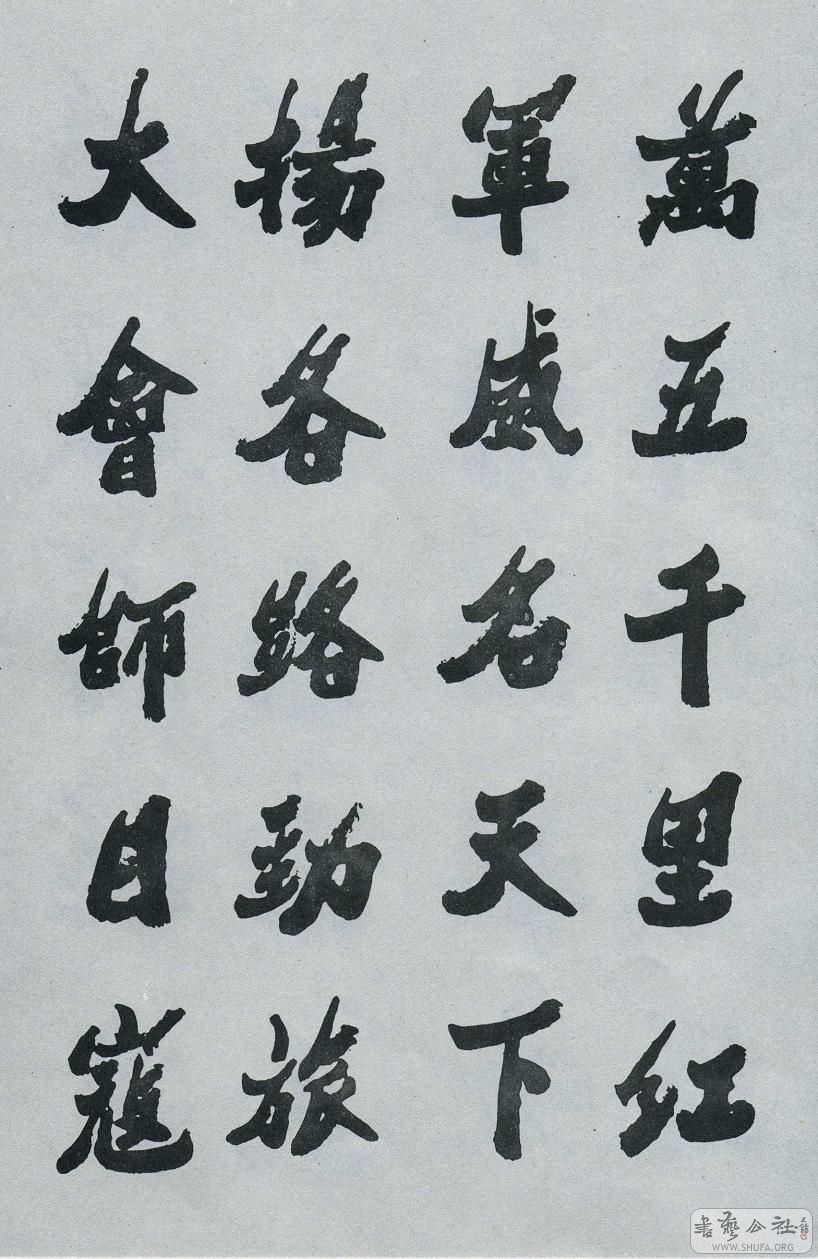 萬五千里紅
軍威名天下
揚各路勁旅
大會師日寇
書藝公社
WWW.SHUFA.ORG